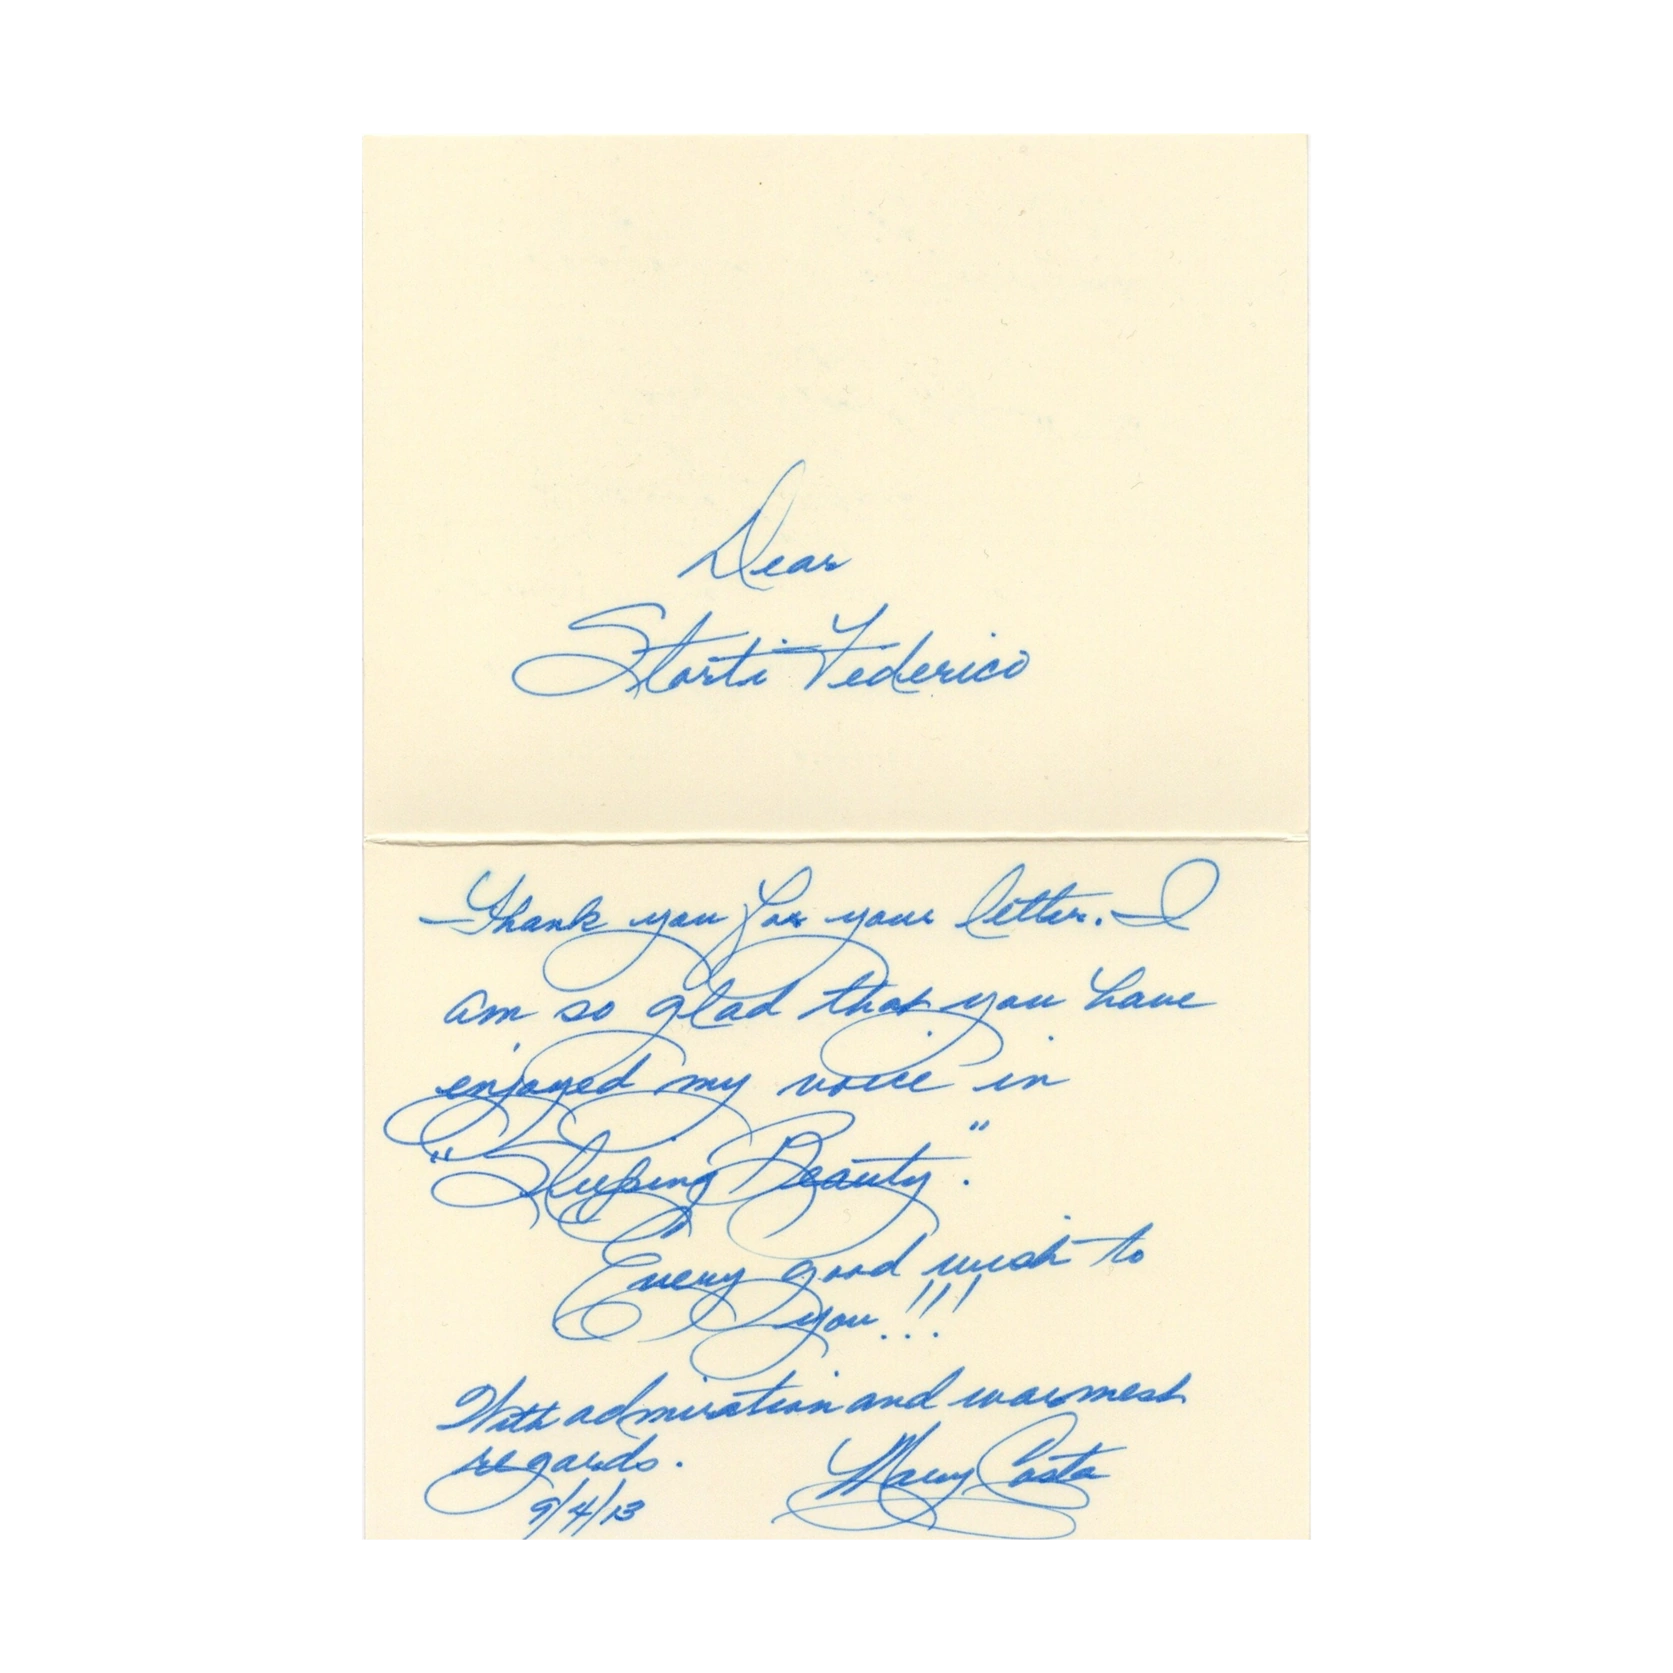 Dear
Storti Federico
Thank you for your letter. I
am so glad that you have
enjoyed my voice in
"Sleeping Beauty."
Every good wish to
you!!!
With admiration and warmest
regards. Mary Costa
9/4/13